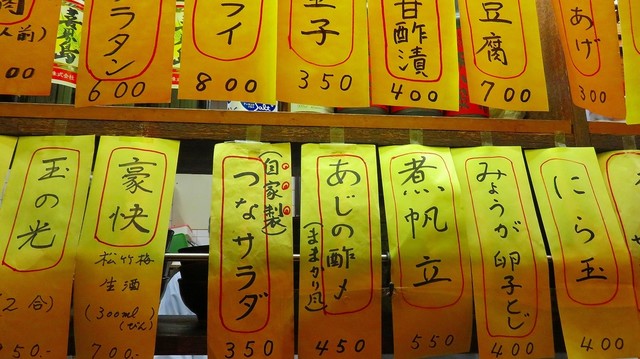 人前)
00
ラタン
600
フイ
800
子
350
甘酢漬
400
豆腐
700
あげ
300
玉の光
2合)
50.-
豪快
松竹梅
生酒
(300ml)
(びん)
700.-
(自家製)
つなサラダ
350
あじの酢〆
(ままかり風)
450
煮帆立
550
みょうが卵子とじ
400
にら玉
400